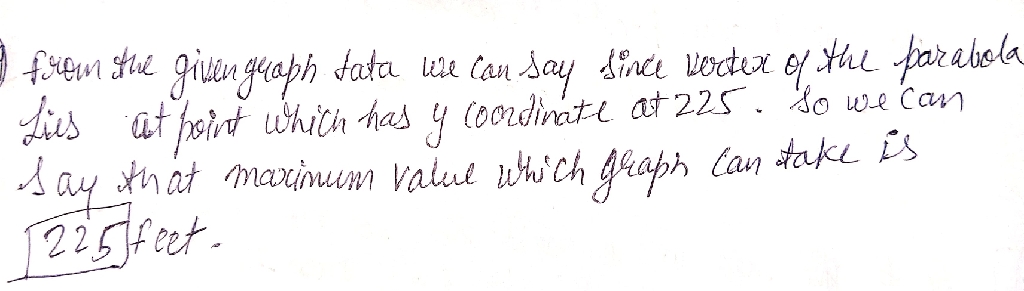 ) from the given graph data we can say since vertex of the parabola
lies at point which has y coordinate at 225. So we can
say that maximum value which graph can take is
225 feet.